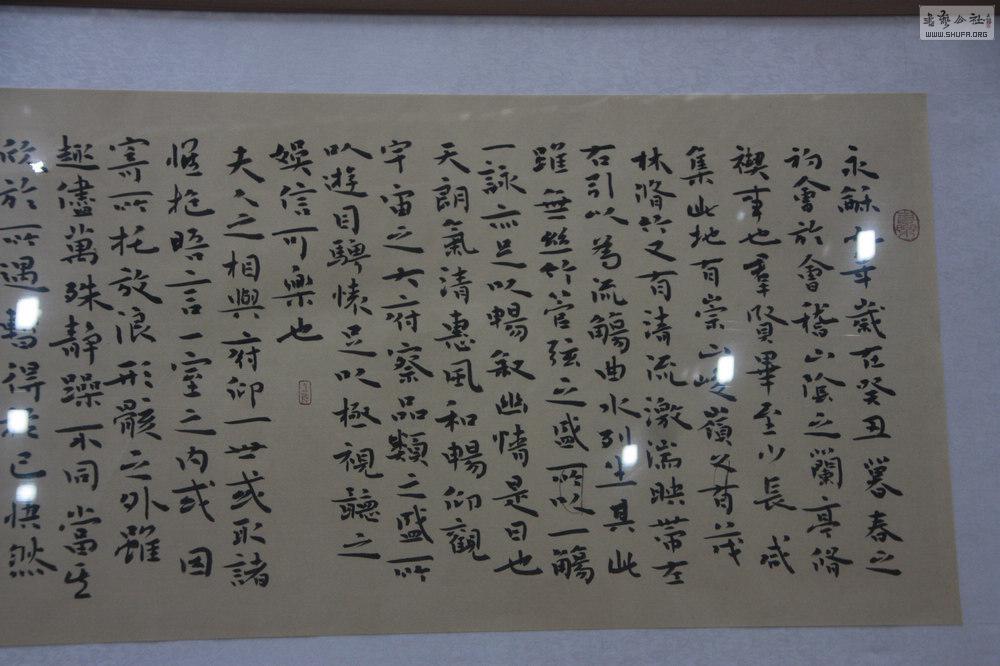 永龢九年歲在癸丑暮春之
初會於會稽山陰之蘭亭脩
禊事也羣賢畢至少長咸
集此地有崇山峻嶺又有茂
林脩竹又有清流激湍映帶左
右引以為流觴曲水列坐其此
雖無絲竹管弦之盛所以一觴
一詠亦足以暢敘幽情是日也
天朗氣清惠風和暢仰觀
宇宙之大俯察品類之盛所
以遊目騁懷足以極視聽之
娛信可樂也
夫人之相與俯仰一世或取諸
懷抱晤言一室之內或因
寄所托放浪形骸之外雖
趣儘萬殊靜躁不同當其
欣於所遇暫得於己快然
書藝公社
WWW.SHUFA.ORG